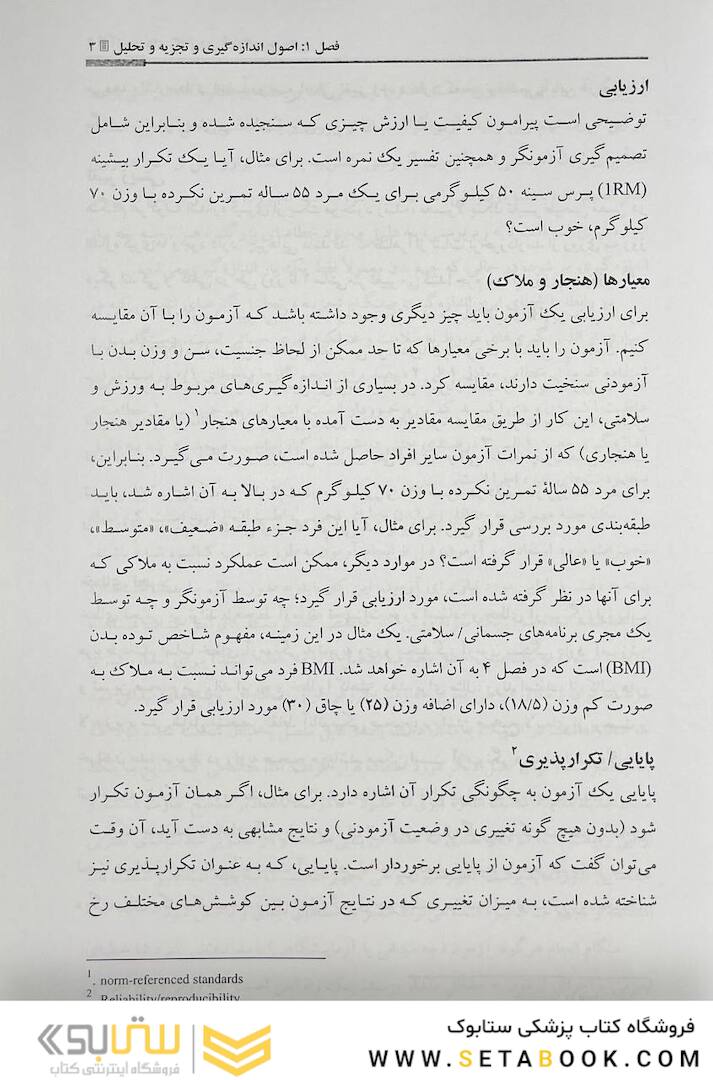 فصل ۱: اصول اندازه‌گیری و تجزیه و تحلیل ۳
ارزیابی
توضیحی است پیرامون کیفیت یا ارزش چیزی که سنجیده شده و بنابراین شامل
تصمیم‌گیری آزمونگر و همچنین تفسیر یک نمره است. برای مثال، آیا یک تکرار بیشینه
(1RM) پرس سینه ۵۰ کیلوگرمی برای یک مرد ۵۵ ساله تمرین نکرده با وزن ۷۰
کیلوگرم، خوب است؟
معیارها (هنجار و ملاک)
برای ارزیابی یک آزمون باید چیز دیگری وجود داشته باشد که آزمون را با آن مقایسه
کنیم. آزمون را باید با برخی معیارها که تا حد ممکن از لحاظ جنسیت، سن و وزن بدن با
آزمودنی سنخیت دارند، مقایسه کرد. در بسیاری از اندازه‌گیری‌های مربوط به ورزش و
سلامتی، این کار از طریق مقایسه مقادیر به دست آمده با معیارهای هنجار۱ (یا مقادیر هنجار
یا هنجاری) که از نمرات آزمون سایر افراد حاصل شده است، صورت می‌گیرد. بنابراین،
برای مرد ۵۵ سالۀ تمرین نکرده با وزن ۷۰ کیلوگرم که در بالا به آن اشاره شد، باید
طبقه‌بندی مورد بررسی قرار گیرد. برای مثال، آیا این فرد جزء طبقه «ضعیف»، «متوسط»،
«خوب» یا «عالی» قرار گرفته است؟ در موارد دیگر، ممکن است عملکرد نسبت به ملاکی که
برای آنها در نظر گرفته شده است، مورد ارزیابی قرار گیرد؛ چه توسط آزمونگر و چه توسط
یک مجری برنامه‌های جسمانی/ سلامتی. یک مثال در این زمینه، مفهوم شاخص توده بدن
(BMI) است که در فصل ۴ به آن اشاره خواهد شد. BMI فرد می‌تواند نسبت به ملاک به
صورت کم وزن (۱۸/۵)، دارای اضافه وزن (۲۵) یا چاق (۳۰) مورد ارزیابی قرار گیرد.
پایایی/ تکرارپذیری۲
پایایی یک آزمون به چگونگی تکرار آن اشاره دارد. برای مثال، اگر همان آزمون تکرار
شود (بدون هیچ گونه تغییری در وضعیت آزمودنی) و نتایج مشابهی به دست آید، آن وقت
می‌توان گفت که آزمون از پایایی برخوردار است. پایایی، که به عنوان تکرارپذیری نیز
شناخته شده است، به میزان تغییری که در نتایج آزمون بین کوشش‌های مختلف رخ
1. norm-referenced standards
2. Reliability/reproducibility
فروشگاه کتاب پزشکی ستابوک
WWW.SETABOOK.COM
ستابوک
فروشگاه اینترنتی کتاب